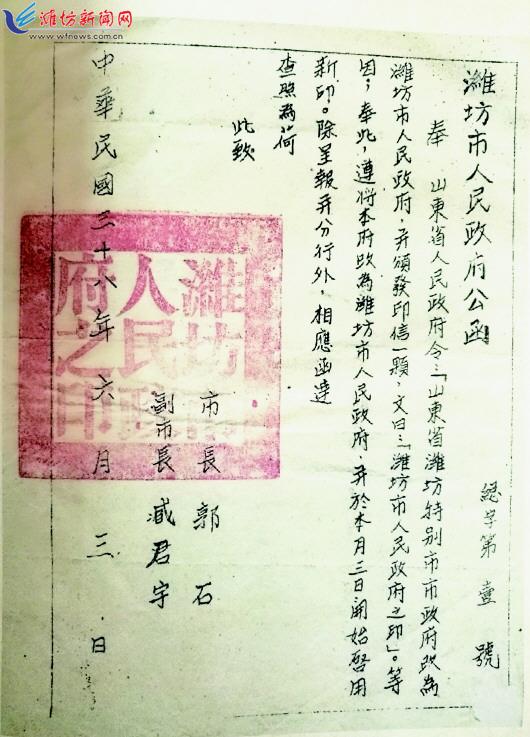 潍坊新闻网
www.wfnews.com.cn
濰坊市人民政府公函
總字第壹號
奉 山東省人民政府令:「山東省濰坊特别市市政府改為
濰坊市人民政府,并頒發印信一顆,文曰:「濰坊市人民政府之印」。等
因;奉此,遵将本府改為濰坊市人民政府,并於本月三日開始啓用
新印。除呈報并分行外,相應函達
查照為荷
此致
市長 郭石
副市長 臧君宇
中華民國三十八年六月三日
濰坊市
人民政
府之印